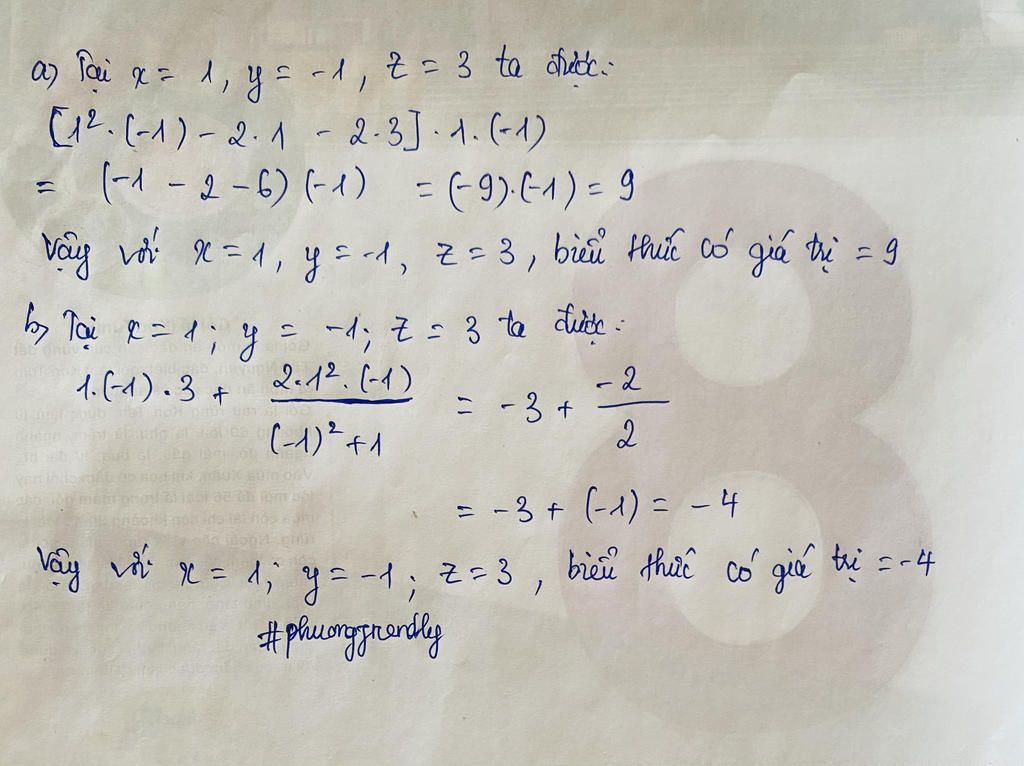 a) Tại x = 1, y = -1, z = 3 ta được:
[1².(-1) - 2.1 - 2.3].1.(-1)
= (-1 - 2 - 6)(-1) = (-9).(-1) = 9
Vậy với x = 1, y = -1, z = 3, biểu thức có giá trị = 9
b) Tại x = 1; y = -1; z = 3 ta được:
1.(-1).3 + \frac{2.1².(-1)}{(-1)²+1} = -3 + \frac{-2}{2}
= -3 + (-1) = -4
Vậy với x = 1; y = -1; z = 3, biểu thức có giá trị = -4
#phuongfrendly